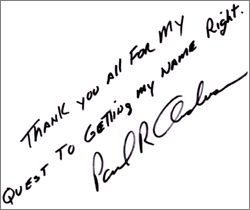 THANK YOU ALL FOR MY
QUEST TO GETTING MY NAME RIGHT.
Paul R